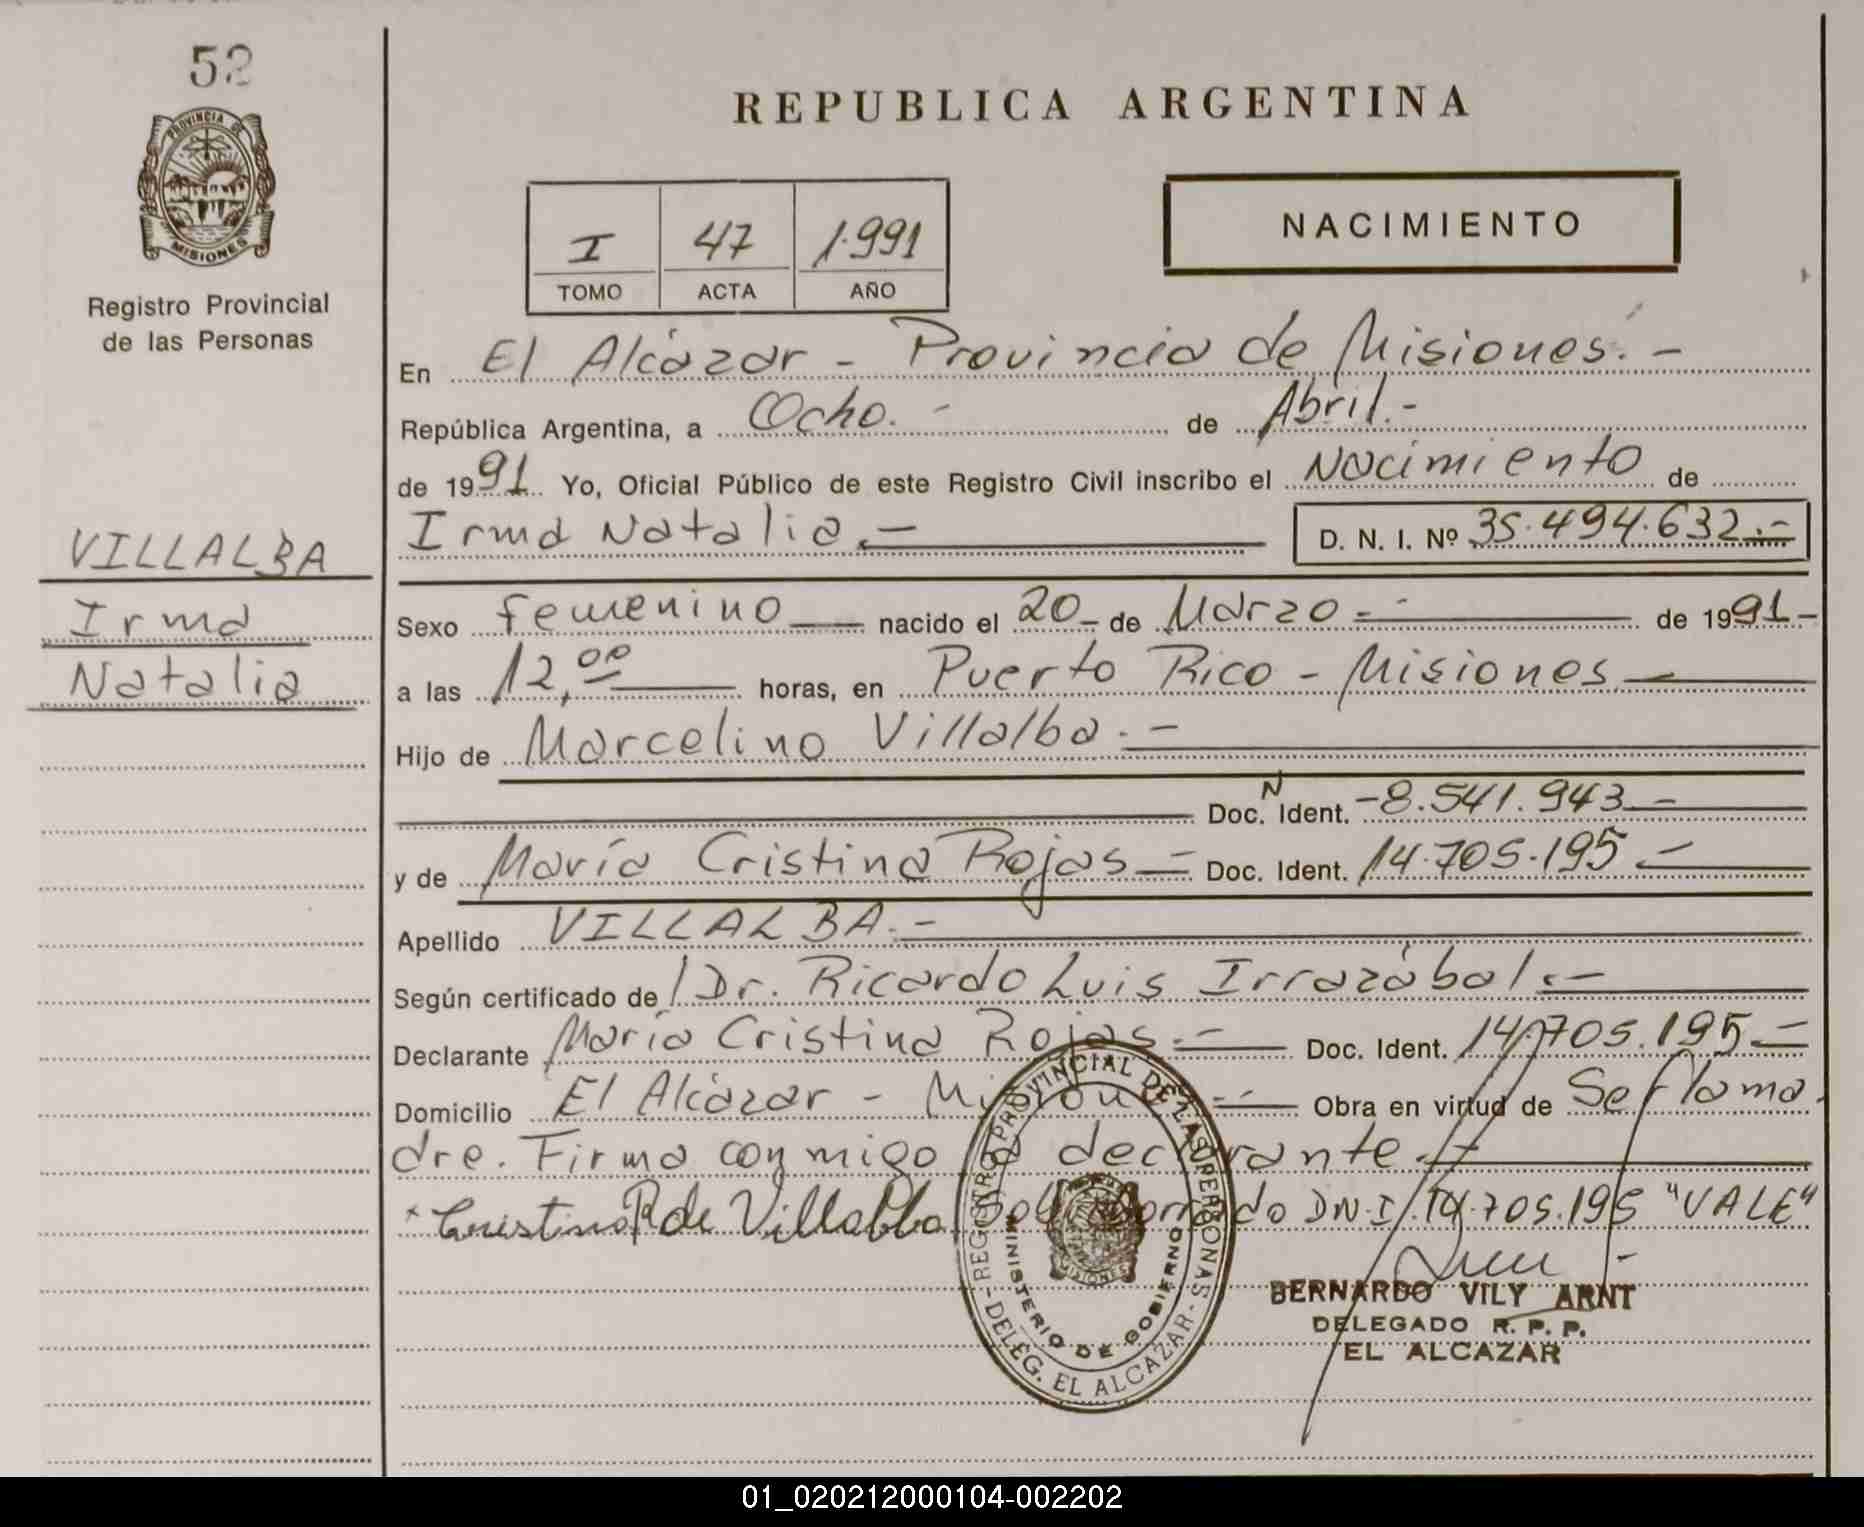 52
PROVINCIA DE
MISIONES
Registro Provincial
de las Personas
VILLALBA
Irma
Natalia
REPUBLICA ARGENTINA
I 47 1.991
TOMO ACTA AÑO
NACIMIENTO
En El Alcázar - Provincia de Misiones. -
República Argentina, a Ocho. - de Abril. -
de 1991 Yo, Oficial Público de este Registro Civil inscribo el Nacimiento de
Irma Natalia. - D. N. I. Nº 35.494.632.-
Sexo femenino nacido el 20 - de Marzo - de 1991 -
a las 12,00 horas, en Puerto Rico - Misiones
Hijo de Marcelino Villalba. -
Doc. N Ident. - 8.541.943 -
y de María Cristina Rojas - Doc. Ident. 14.705.195 -
Apellido VILLALBA. -
Según certificado de Dr. Ricardo Luis Irrazábal. -
Declarante María Cristina Rojas. - Doc. Ident. 14.705.195 -
Domicilio El Alcázar - Obra en virtud de Ser la ma-
dre. Firma conmigo la declarante. -
Cristina R de Villalba DN.I. 14.705.195 "VALE"
REGISTRO PROVINCIAL DE LAS PERSONAS
MINISTERIO DE GOBIERNO
DELEG. EL ALCAZAR
MISIONES
BERNARDO VILY ARNT
DELEGADO R. P. P.
EL ALCAZAR
01_020212000104-002202